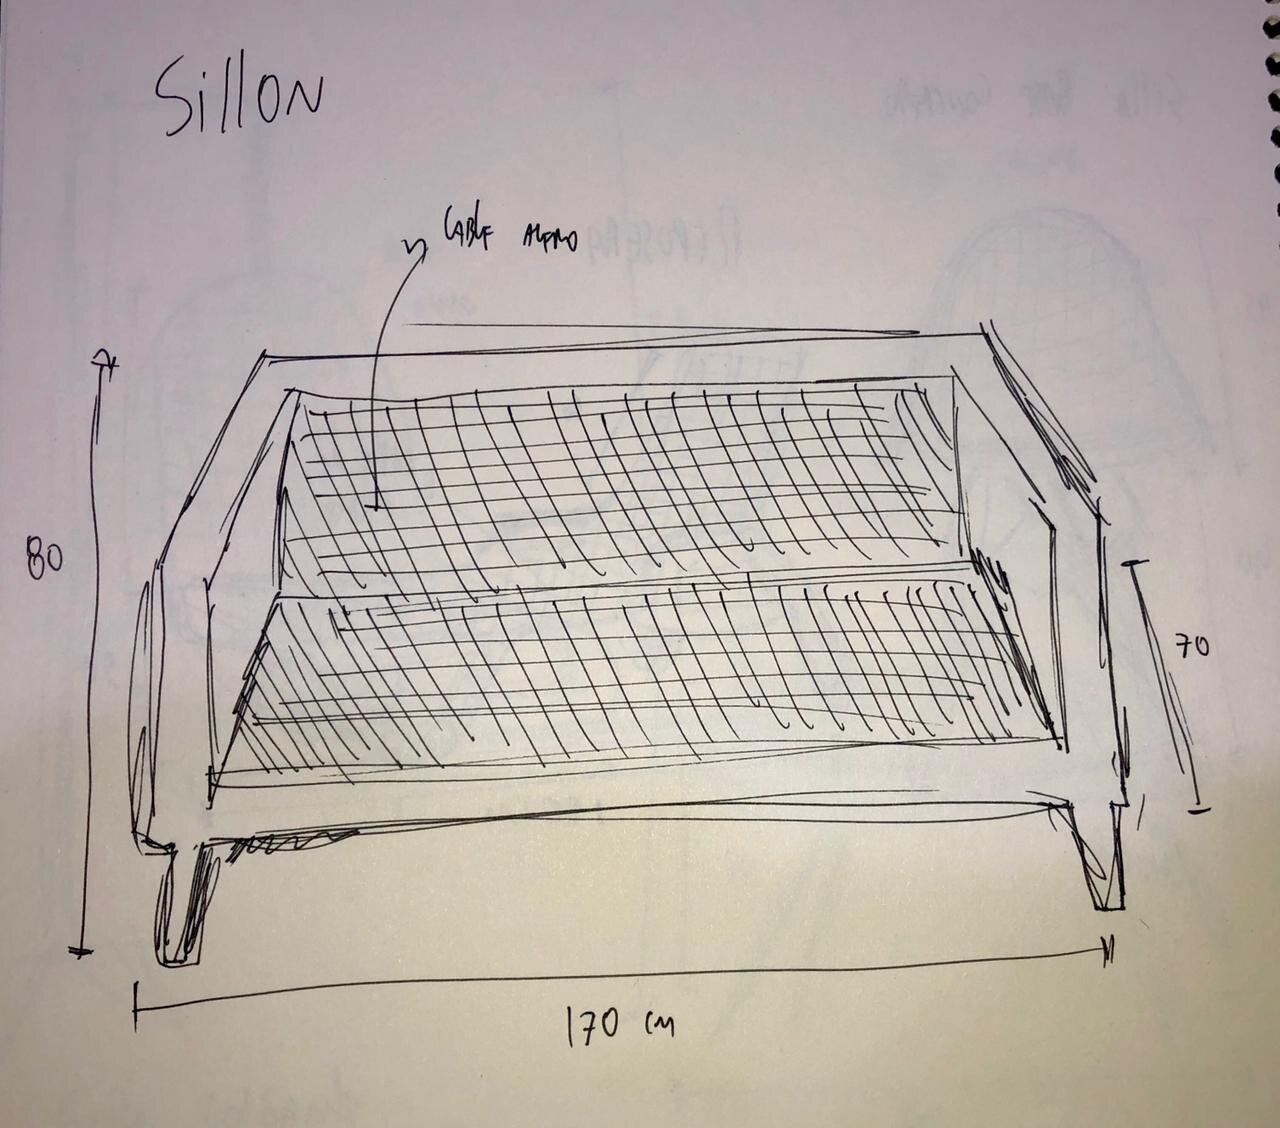 Sillon
CABLE ACERO
80
70
170 cm